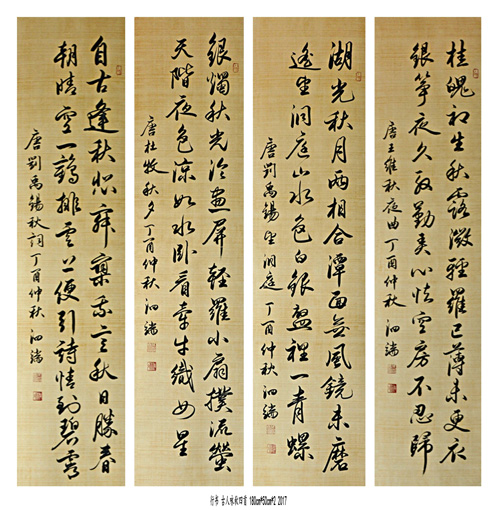 桂魄初生秋露微輕羅已薄未更衣
銀箏夜久殷勤弄心怯空房不忍歸
唐王維秋夜曲丁酉仲秋泗
湖光秋月兩相合潭面無風鏡未磨
遙望洞庭山水色白銀盤裡一青螺
唐劉禹錫望洞庭丁酉仲秋泗
銀燭秋光冷畫屏輕羅小扇撲流螢
天階夜色涼如水臥看牽牛織女星
唐杜牧秋夕丁酉仲秋泗
自古逢秋悲寂寥我言秋日勝春
朝晴空一鶴排雲上便引詩情到碧霄
唐劉禹錫秋詞丁酉仲秋泗
行书 古人咏秋四首 180cm*50cm*2 2017